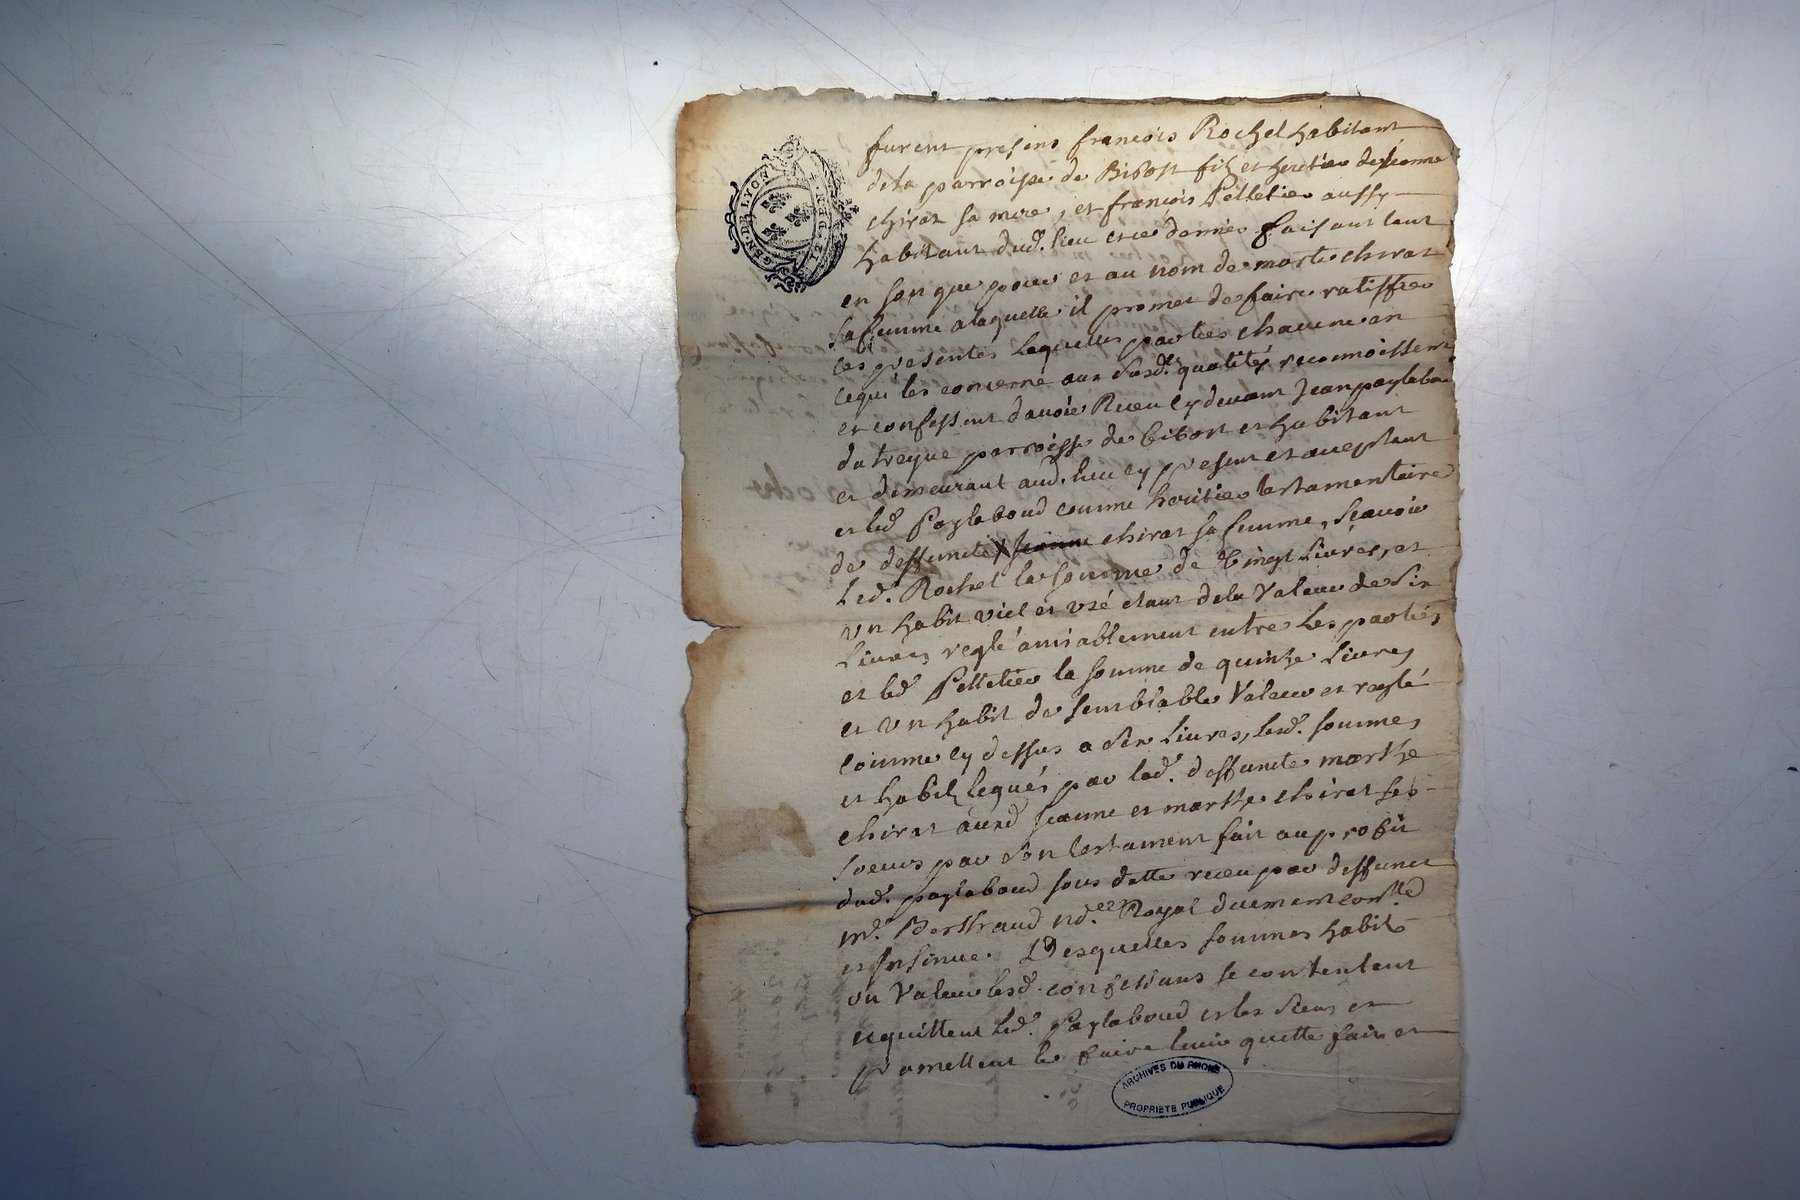 GEN. DE LYON
12. DEN. P. F.
furent presens francois Rochel habitant
dela parroisse de Bibost fils et heritier de Jeanne
chirat sa mere, et francois Pelletier aussy
habitant dud. lieu et ce dernier faisant tant
en son que pour et au nom de marthe chirat
sa femme a laquelle il promet de faire ratiffier
ces presentes Lequelles parties chacune an
cequi les concerne aux susd. qualités reconnoissent
et confessent davoir Receu cy devant Jean paylaboud
du treque parroisse de bibost et habitant
et demeurant aud. lieu cy present et acceptant
et led. Paylaboud comme heritier testamentaire
de deffuncte Jeanne chirat sa femme, sçavoir
Led. Rochel la somme de vingt Livres, et
un habit viel et usé etant dela Valeur de Six
Livres reglé amiablement entre les parties
et led. Pelletier la somme de quinze Livres
et un habit de semblable Valeur et reglé
comme cy dessus a Six Livres, lesd. sommes
et habits legués par lad. deffuncte marthe
chirat auxd. Jeanne et marthe chirat ses
soeurs par son testament fait au profit
dud. paylaboud sous datte receu par deffunct
me. Berthraud nore. Royal duement con.lle
et Insinue. Desquelles sommes habits
ou Valeur lesd. confessans se contentent
equittent led. Paylaboud et les Siens et
promettent le faire tenir quitte fait et
ARCHIVES DU RHONE
PROPRIETE PUBLIQUE